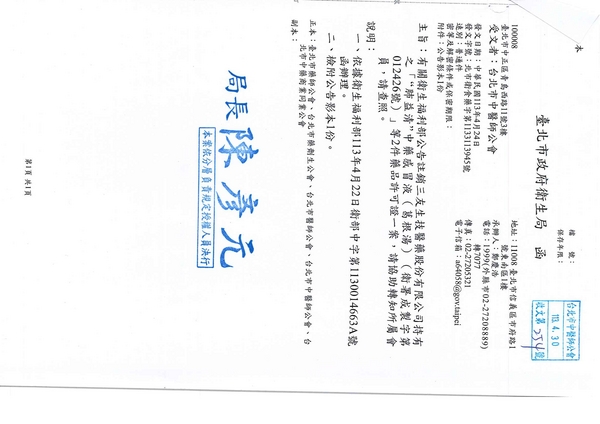 本
檔　號：
保存年限：
臺北市政府衛生局　函
地址：11008臺北市信義區市府路1
號東南區1樓
承辦人：鄭慶浩
電話：1999(外縣市02-27208889)
轉7077
傳真：02-27205321
電子信箱：a64058@gov.taipei
台北市中醫師公會
113. 4. 30
收文第254號
10008
臺北市中正區青島西路11號3樓
受文者：台北市中醫師公會
發文日期：中華民國113年4月24日
發文字號：北市衛食藥字第1133113945號
速別：普通件
密等及解密條件或保密期限：
附件：公告影本1份
主旨：有關衛生福利部公告註銷三友生技醫藥股份有限公司持有
之「"肺益清"中藥感冒液（葛根湯）（衛署成製字第
012426號）」等2件藥品許可證一案，請協助轉知所屬會
員，請查照。
說明：
一、依據衛生福利部113年4月22日衛部中字第1130014663A號
函辦理。
二、檢附公告影本1份。
正本：臺北市藥師公會、台北市藥劑生公會、台北市中醫師公會、台
北市中藥商業同業公會
副本：
局長 陳彥元
本案依分層負責規定授權人員決行
第1頁 共1頁